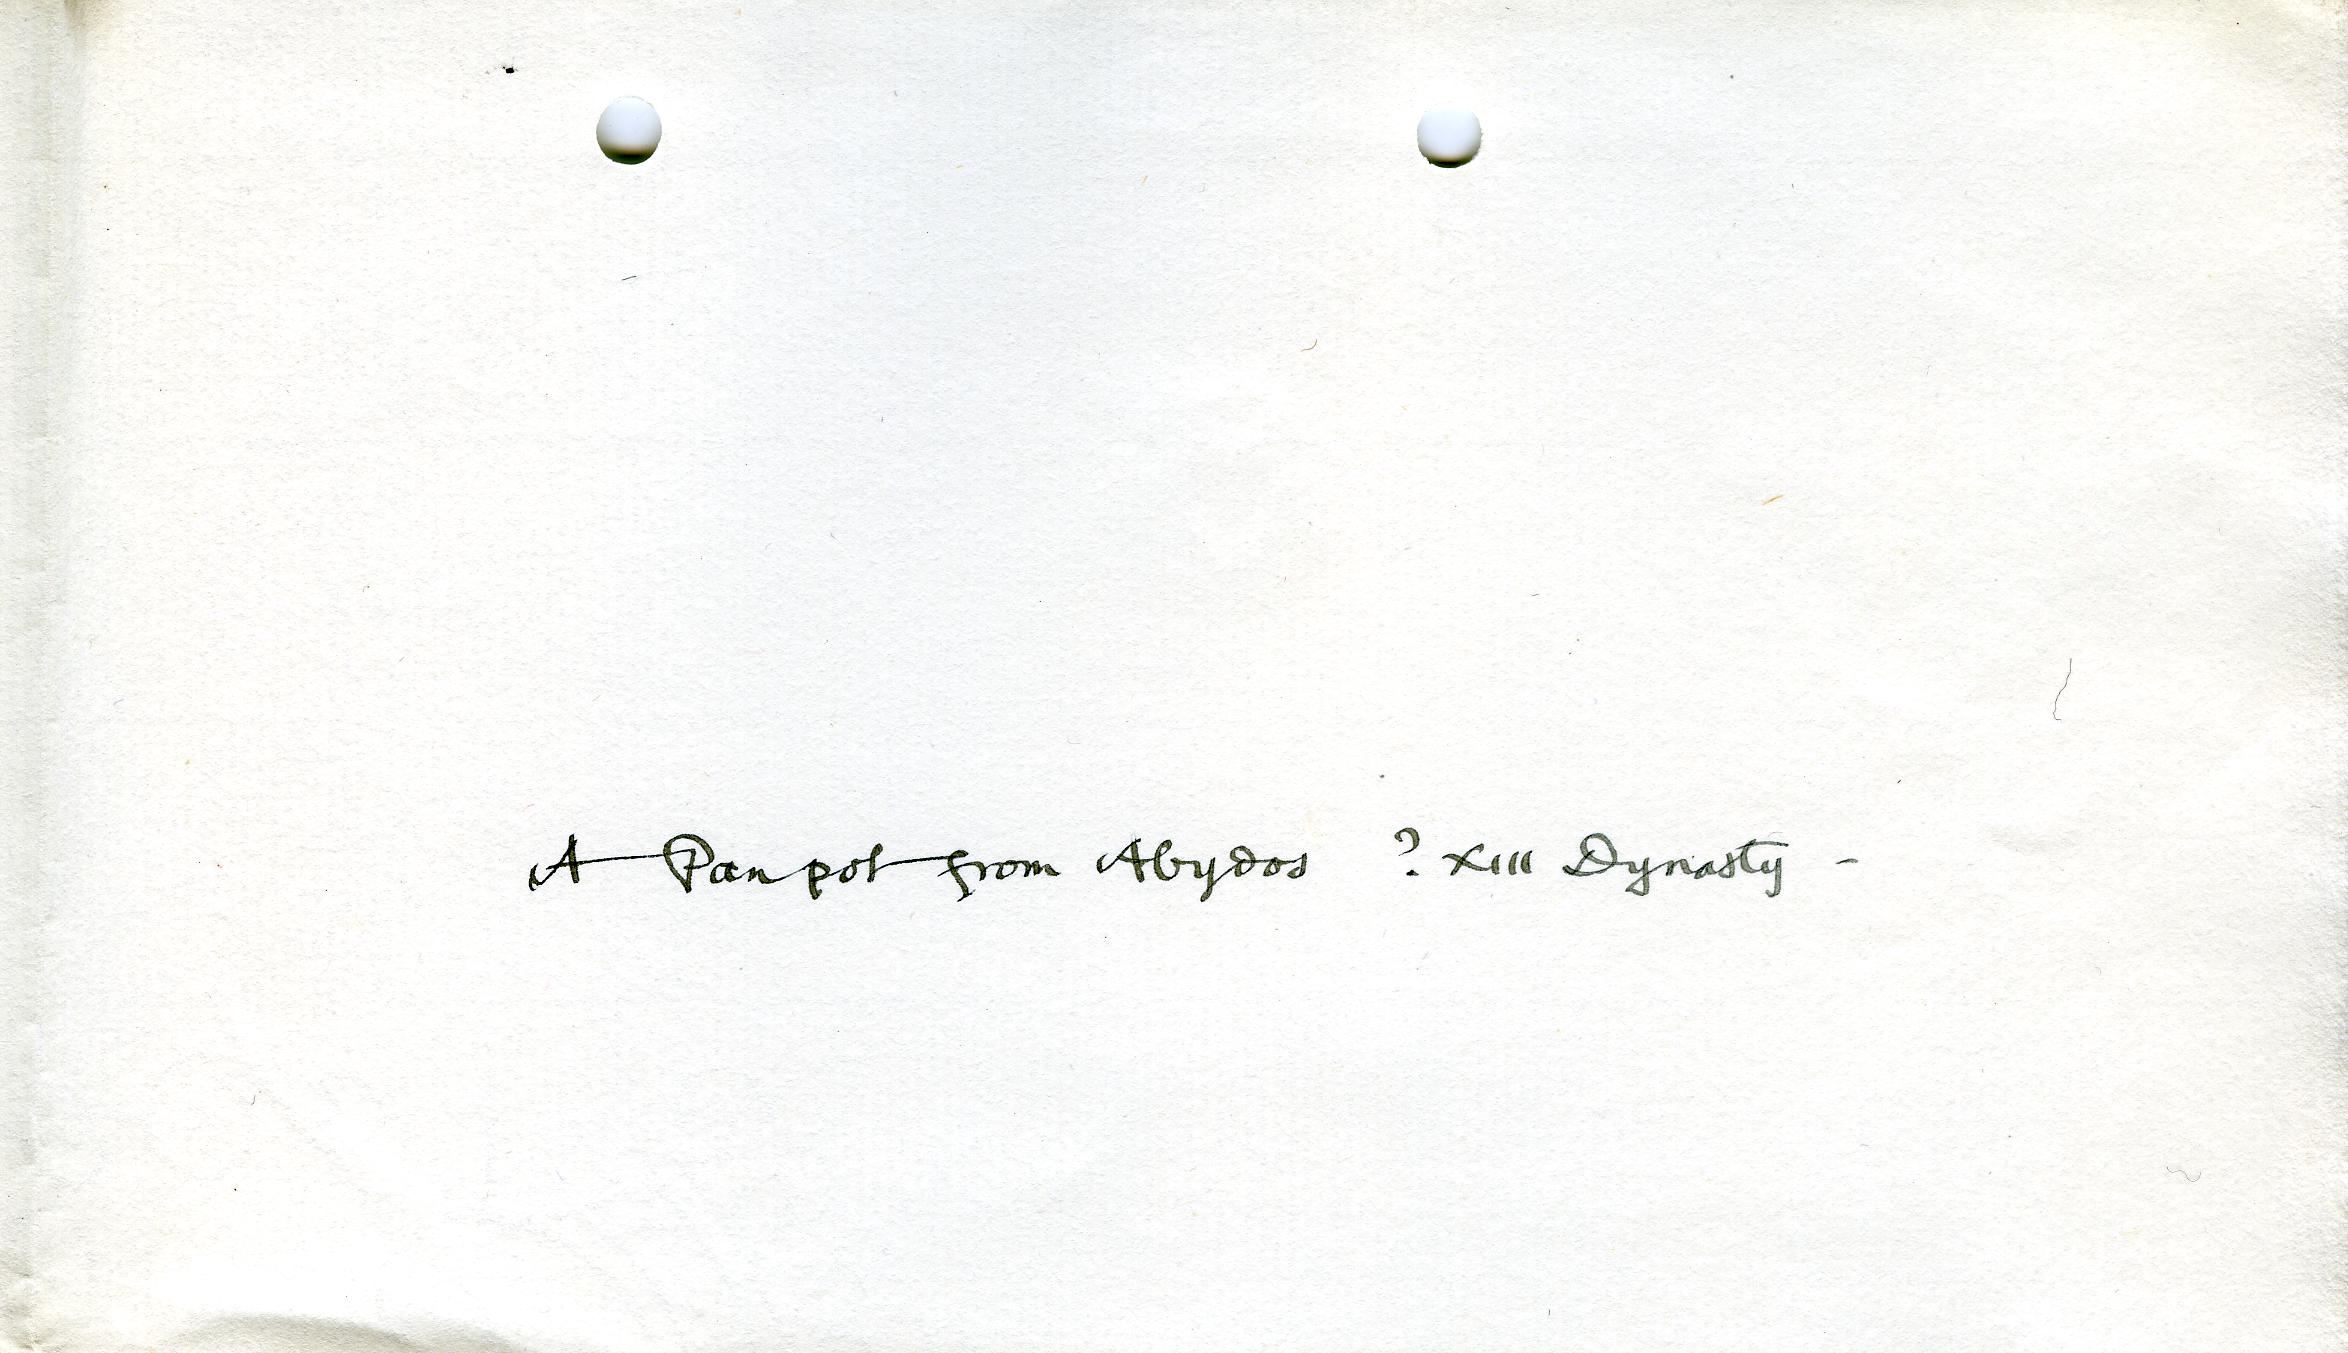 A Pan pot from Abydos ? XIII Dynasty -